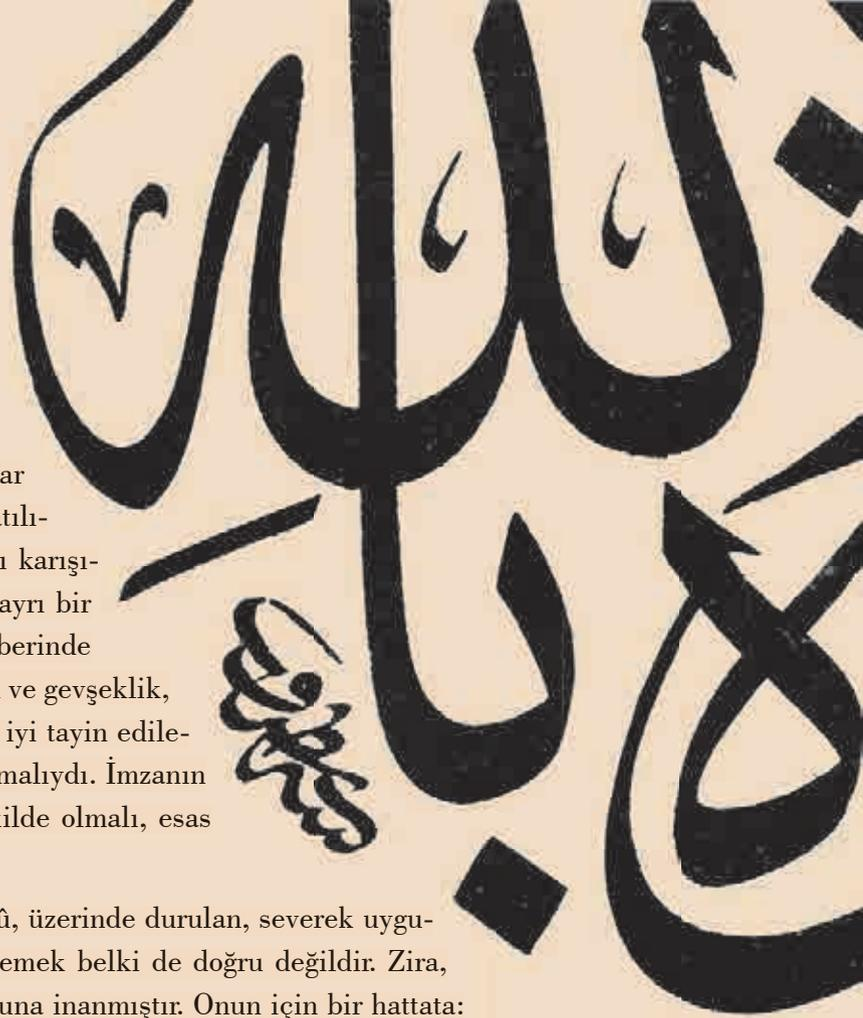 لا بالله
ar
tılı-
ı karışı-
ayrı bir
berinde
ve gevşeklik,
iyi tayin edile-
malıydı. İmzanın
ilde olmalı, esas
û, üzerinde durulan, severek uygu-
emek belki de doğru değildir. Zira,
una inanmıştır. Onun için bir hattata: